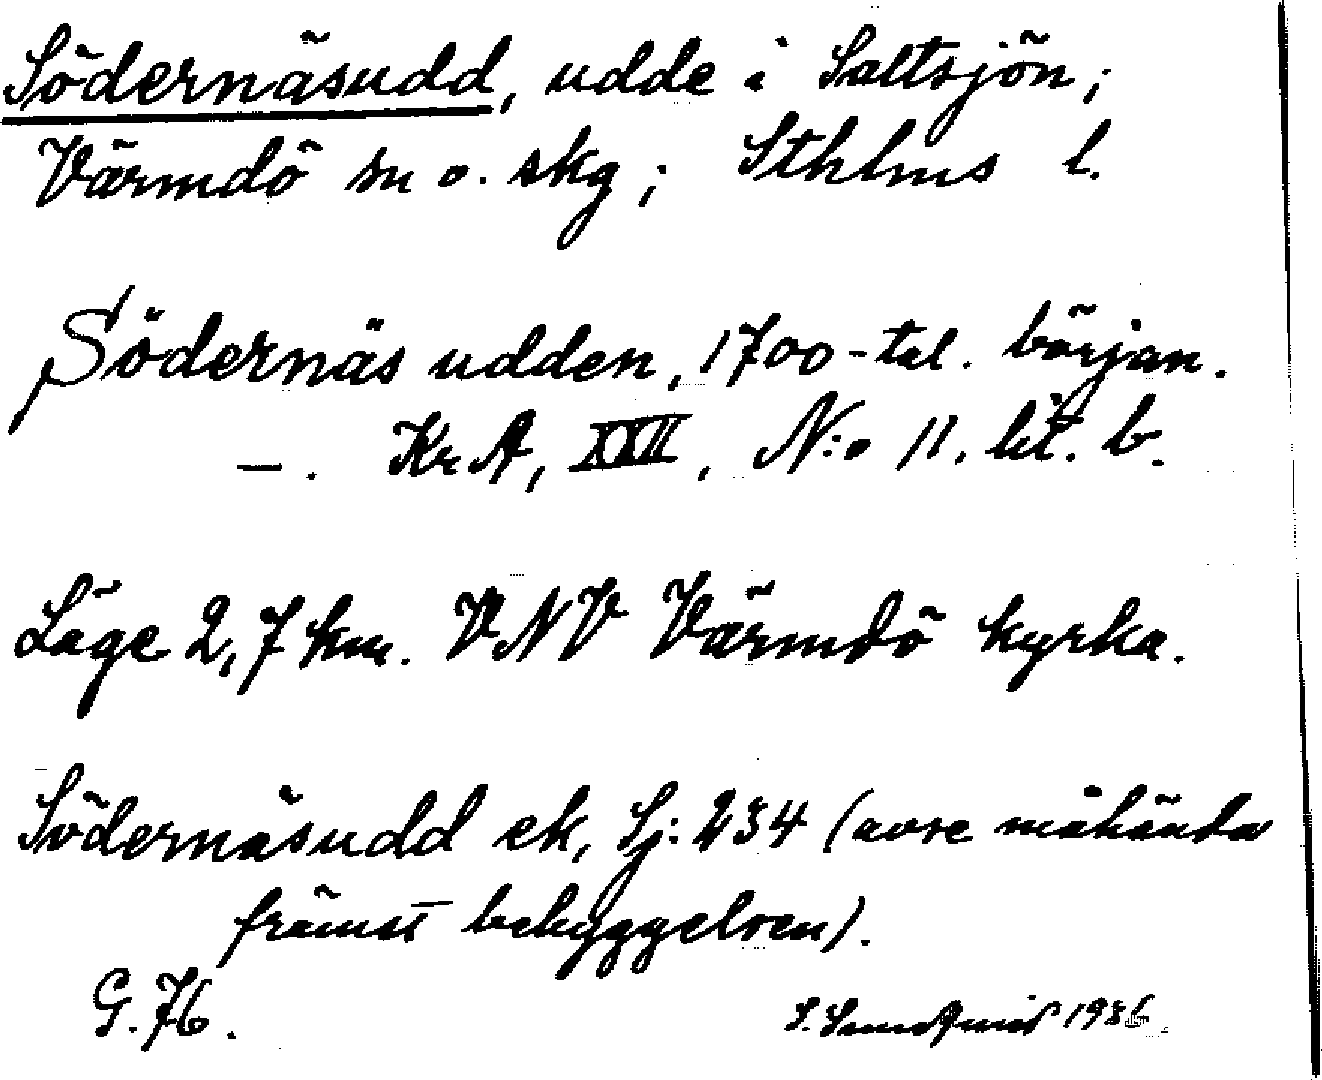 Södernäsudd, udde i Saltsjön;
Värmdö sn o. skg; Sthlms l.
Södernäs udden, 1700-tal. början.
—. KrA, XXII, N:o 11. lit. b.
Läge 2,7 km. VNV Värmdö kyrka.
Södernäsudd ek, Sj: 234 (avse måhända
främst bebyggelsen).
G. 76.